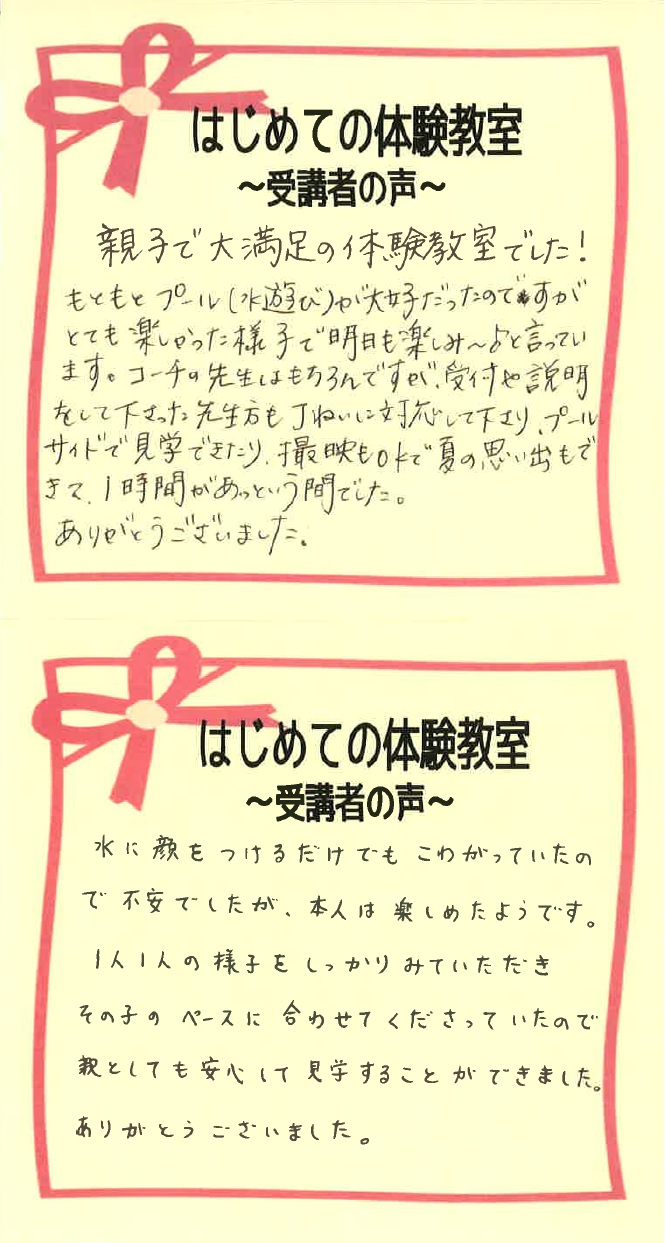 はじめての体験教室
～受講者の声～
親子で大満足の体験教室でした!
もともとプール(水遊び)が大好だったのですが
とても楽しかった様子で明日も楽しみ～♪と言ってい
ます。コーチの先生はもちろんですが、受付や説明
をして下さった先生方も丁ねいに対応して下さり、プール
サイドで見学できたり、撮映もOKで夏の思い出もで
きて、1時間があっという間でした。
ありがとうございました。
はじめての体験教室
～受講者の声～
水に顔をつけるだけでもこわがっていたの
で不安でしたが、本人は楽しめたようです。
1人1人の様子をしっかりみていただき
その子のペースに合わせてくださっていたので
親としても安心して見学することができました。
ありがとうございました。